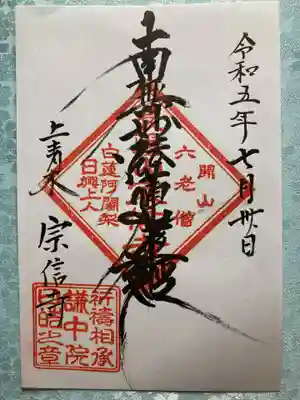 令和五年七月卅日
南無妙法蓮華経
開山
六老僧
白蓮阿闍梨
日興上人
上青木
宗信寺
祈祷相承
謙中院
日的之章